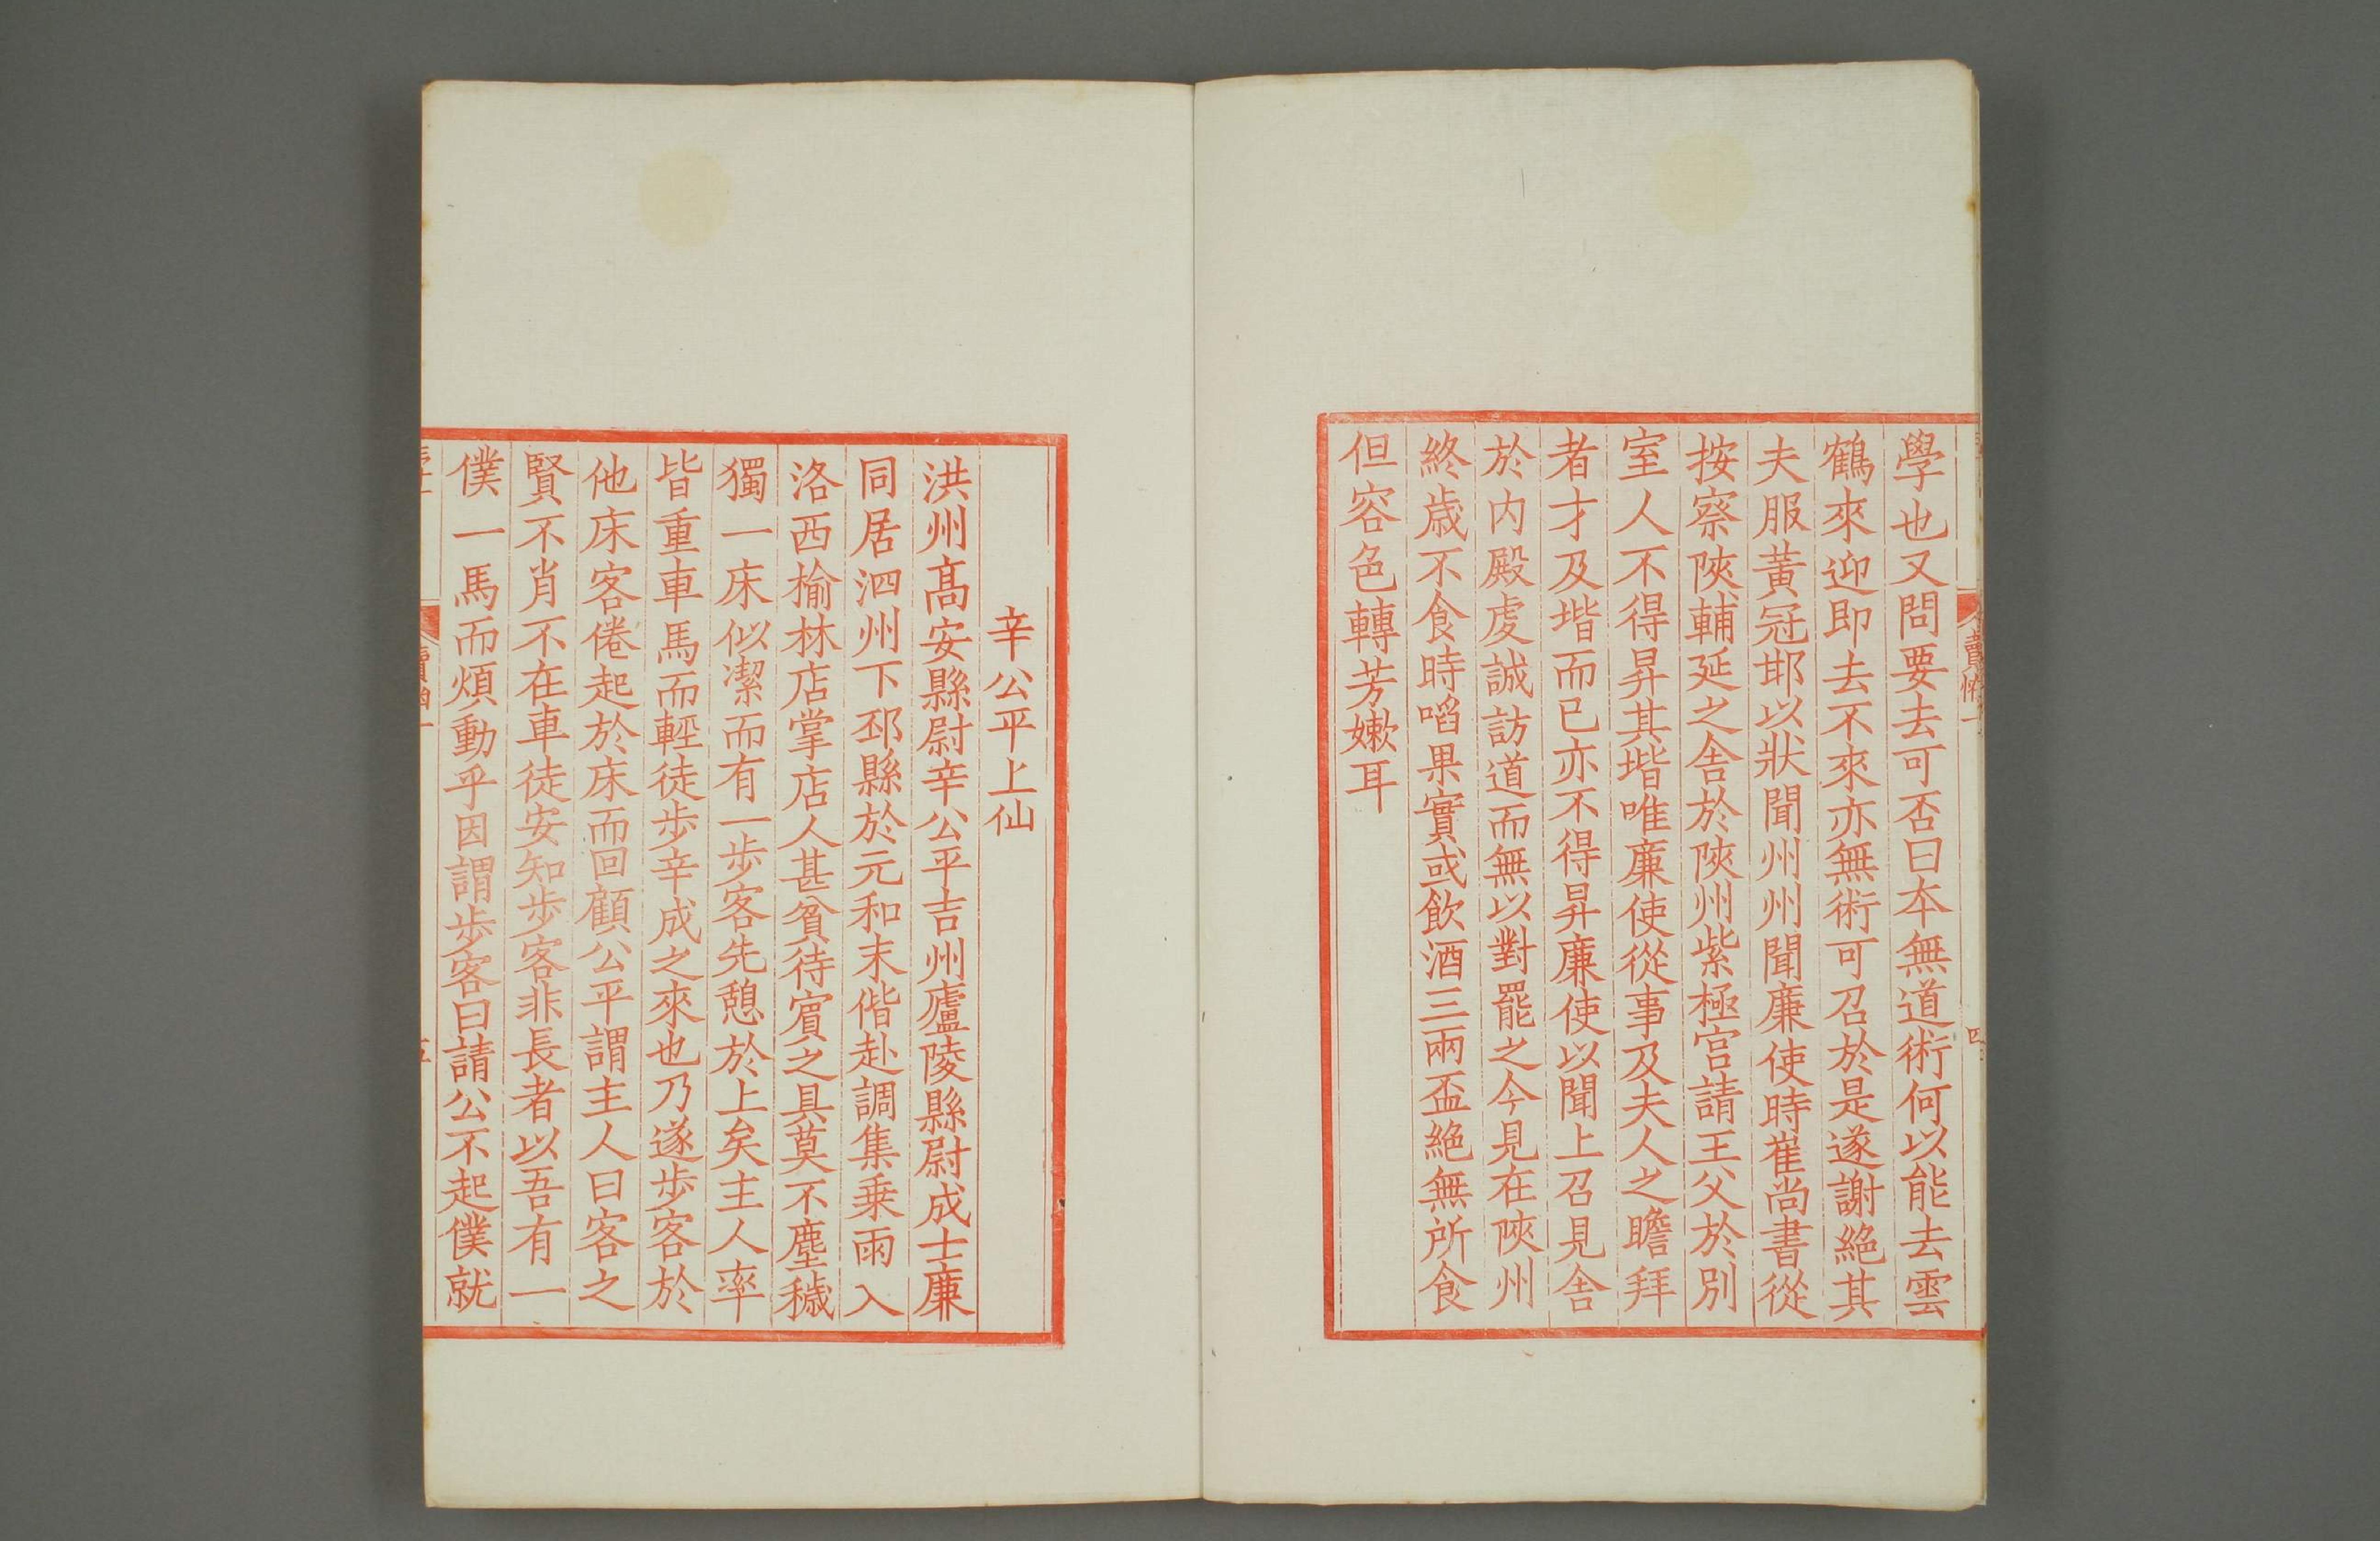 學也又問要去可否曰本無道術何以能去雲
鶴來迎即去不來亦無術可召於是遂謝絕其
夫服黃冠耶以狀聞州州聞廉使時崔尚書從
按察陝輔延之舍於陝州紫極宮請王父於別
室人不得昇其堦唯廉使從事及夫人之瞻拜
者才及堦而已亦不得昇廉使以聞上召見舍
於内殿䖍誠訪道而無以對罷之今見在陝州
終歲不食時啗果實或飲酒三兩盃絕無所食
但容色轉芳嫰耳
辛公平上仙
洪州髙安縣尉辛公平吉州廬陵縣尉成士廉
同居泗州下邳縣於元和末偕赴調集乗雨入
洛西榆林店掌店人甚貧待賔之具莫不塵穢
獨一床似潔而有一步客先憩於上矣主人率
皆重車馬而輕徒步辛成之來也乃遂步客於
他床客倦起於床而回顧公平謂主人曰客之
賢不肖不在車徒安知步客非長者以吾有一
僕一馬而煩動乎因謂步客曰請公不起僕就